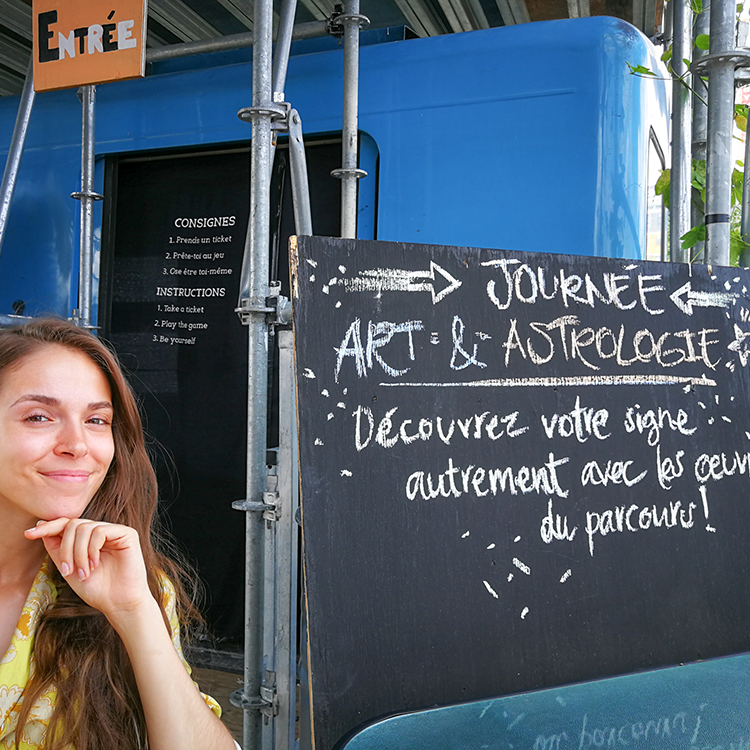 ENTRÉE
CONSIGNES
1. Prends un ticket
2. Prête-toi au jeu
3. Ose être toi-même
INSTRUCTIONS
1. Take a ticket
2. Play the game
3. Be yourself
JOURNÉE
ART & ASTROLOGIE
Découvrez votre signe
autrement avec les oeuv
du parcours!